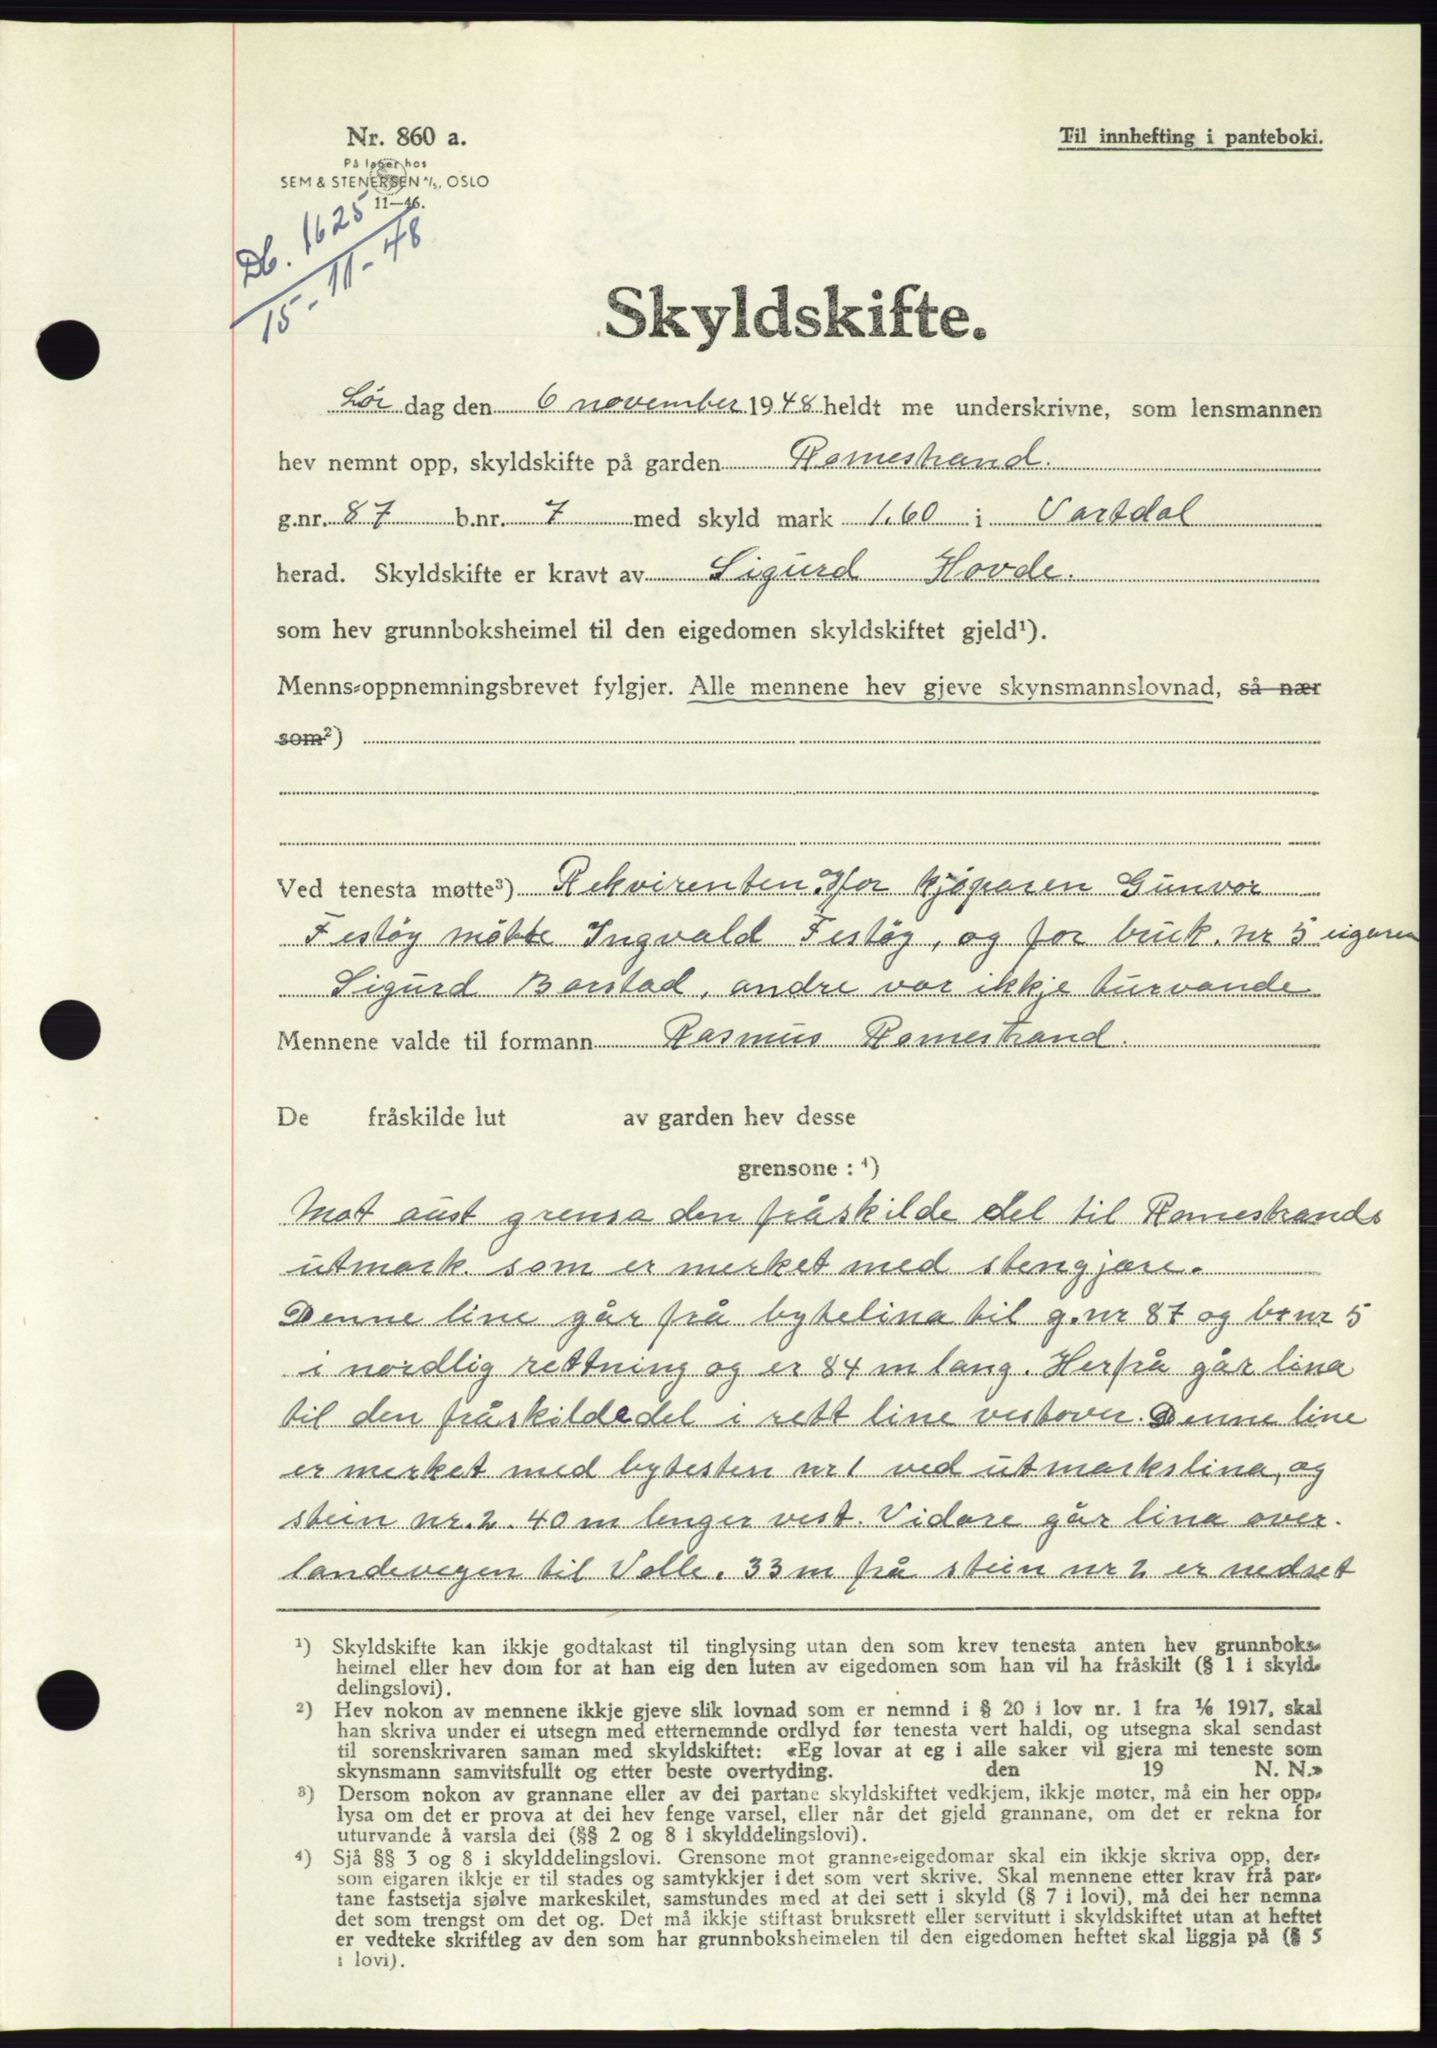 Nr. 860 a.
På lager hos
SEM & STENERSEN A/S, OSLO
11—46.
Til innhefting i panteboki.
Db. 1625
15-11-48
Skyldskifte.
Lör dag den 6 november 1948 heldt me underskrivne, som lensmannen
hev nemnt opp, skyldskifte på garden Romestrand.
g.nr. 87 b.nr. 7 med skyld mark 1.60 i Vartdal
herad. Skyldskifte er kravt av Sigurd Hovde.
som hev grunnboksheimel til den eigedomen skyldskiftet gjeld¹).
Menns-oppnemningsbrevet fylgjer. Alle mennene hev gjeve skynsmannslovnad, så nær
som²)
Ved tenesta møtte³) Rekvirenten og for kjöparen Gunvor
Festöy mötte Ingvald Festöy, og for bruk. nr 5 eigaren
Sigurd Barstad, andre var ikkje turvande
Mennene valde til formann Rasmus Romestrand.
De fråskilde lut av garden hev desse
grensone : ⁴)
Mot aust grensa den fråskilde del til Romestrands
utmark. som er merket med stengjare.
Denne line går frå bytelina til g.nr 87 og br nr 5
i nordlig rettning og er 84 m lang. Herfrå går lina
til den fråskilde del i rett line vestover. Denne line
er merket med bytesten nr 1 ved utmarkslina, og
stein nr. 2. 40 m lenger vest. Vidare går lina over.
landevegen til Volle. 33 m frå stein nr 2 er nedset
¹) Skyldskifte kan ikkje godtakast til tinglysing utan den som krev tenesta anten hev grunnboks-
heimel eller hev dom for at han eig den luten av eigedomen som han vil ha fråskilt (§ 1 i skyld-
delingslovi).
²) Hev nokon av mennene ikkje gjeve slik lovnad som er nemnd i § 20 i lov nr. 1 fra ¹/₆ 1917, skal
han skriva under ei utsegn med etternemnde ordlyd før tenesta vert haldi, og utsegna skal sendast
til sorenskrivaren saman med skyldskiftet: «Eg lovar at eg i alle saker vil gjera mi teneste som
skynsmann samvitsfullt og etter beste overtyding. den 19 N. N.»
³) Dersom nokon av grannane eller av dei partane skyldskiftet vedkjem, ikkje møter, må ein her opp-
lysa om det er prova at dei hev fenge varsel, eller når det gjeld grannane, om det er rekna for
uturvande å varsla dei (§§ 2 og 8 i skylddelingslovi).
⁴) Sjå §§ 3 og 8 i skylddelingslovi. Grensone mot granne-eigedomar skal ein ikkje skriva opp, der-
som eigaren ikkje er til stades og samtykkjer i det som vert skrive. Skal mennene etter krav frå par-
tane fastsetja sjølve markeskilet, samstundes med at dei sett i skyld (§ 7 i lovi), må dei her nemna
det som trengst om det og. Det må ikkje stiftast bruksrett eller servitutt i skyldskiftet utan at heftet
er vedteke skriftleg av den som har grunnboksheimelen til den eigedomen heftet skal liggja på (§ 5
i lovi).